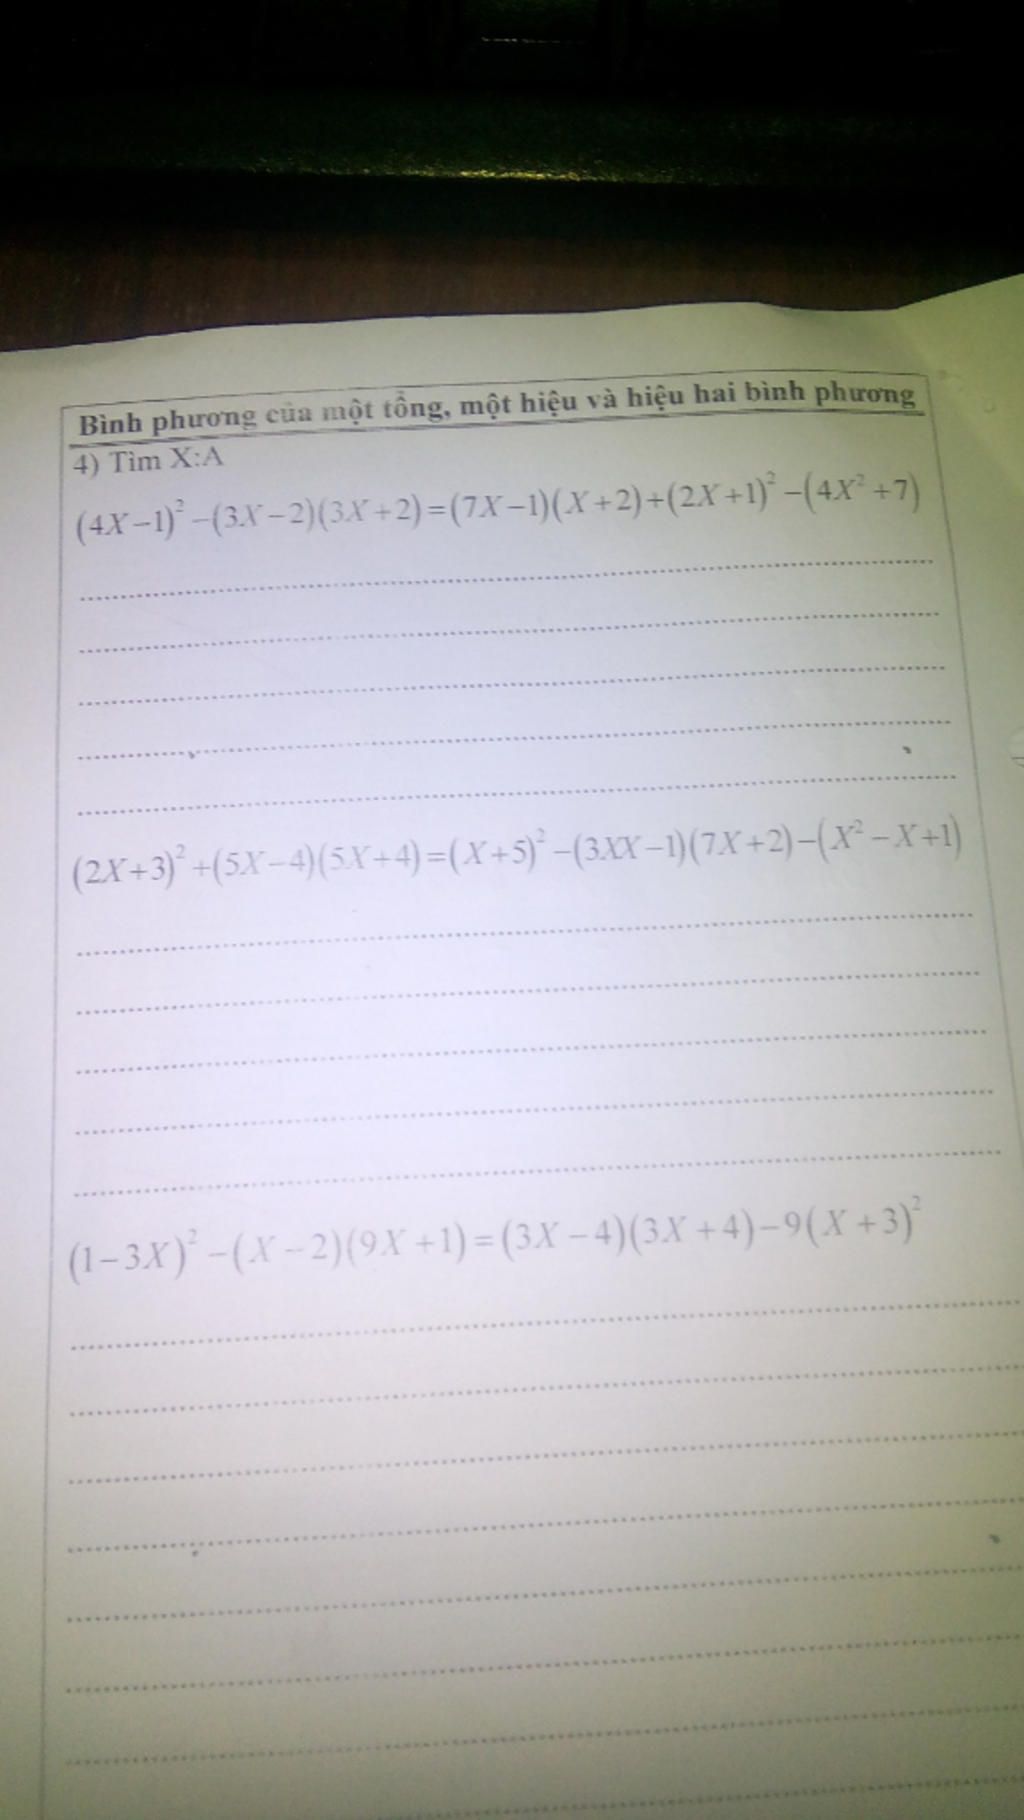 Bình phương của một tổng, một hiệu và hiệu hai bình phương
4) Tìm X:A
(4X−1)²−(3X−2)(3X+2)=(7X−1)(X+2)+(2X+1)²−(4X²+7)
(2X+3)²+(5X−4)(5X+4)=(X+5)²−(3XX−1)(7X+2)−(X²−X+1)
(1−3X)²−(X−2)(9X+1)=(3X−4)(3X+4)−9(X+3)²